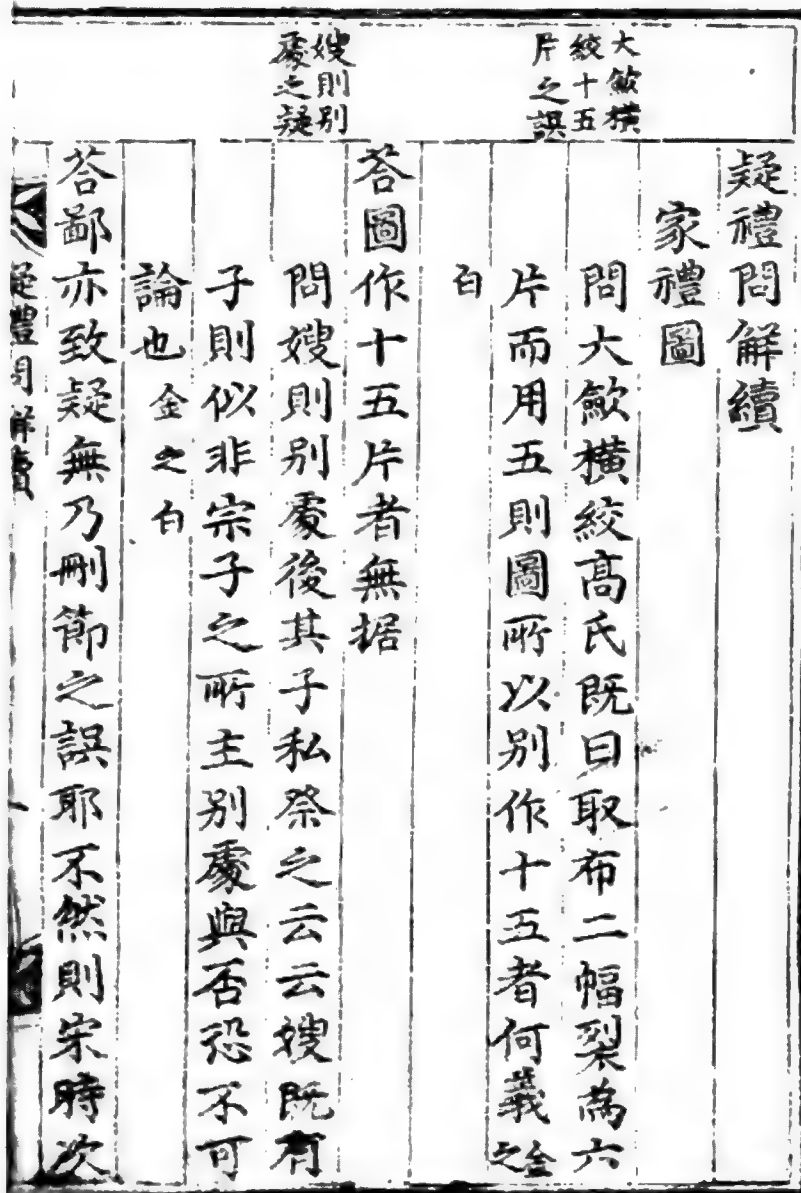 大斂橫
絞十五
片之誤
嫂則别
處之疑
疑禮問解續
家禮圖
問大斂橫絞高氏既曰取布二幅裂為六
片而用五則圖所以别作十五者何義金之
白
答圖作十五片者無据
問嫂則别處後其子私祭之云云嫂既有
子則似非宗子之所主别處與否恐不可
論也金之白
答鄙亦致疑無乃刪節之誤耶不然則宋時次
疑禮問解續